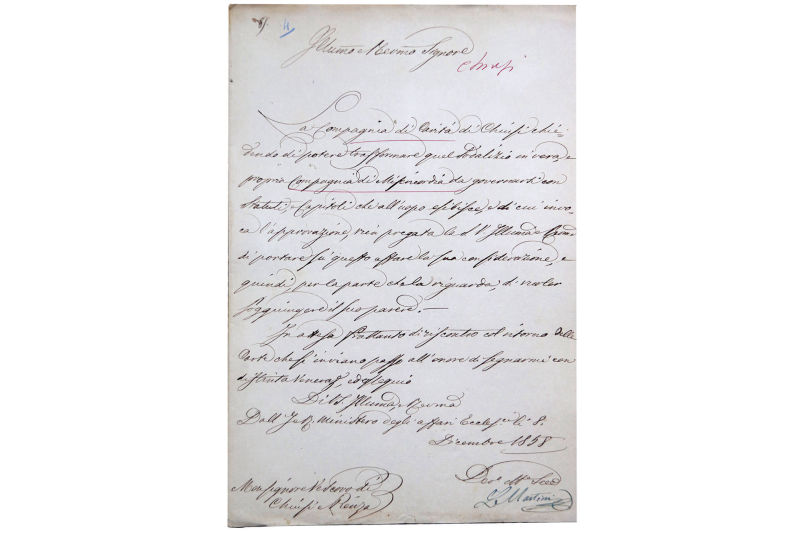 Illumo e Revmo Signore
Chiusi
La Compagnia di Carità di Chiusi chie-
dendo di potere trasformare quel Sodalizio in vera e
propria Compagnia di Misericordia da governarsi con
Statuti, e Capitoli che all'uopo esibisce, e di cui invo-
ca l'approvazione, vien pregata la d V. Illuma e Revma
di portare su questo affare la sua considerazione, e
quindi, per la parte che la riguarda, di voler
soggiungere il suo parere.—
In attesa frattanto di riscontro col ritorno delle
Carte che si inviano passo all'onore di segnarmi con
distinta venerazne, ed ossequio
Di V.S. Illuma e Revma
Dall' I. e R. Ministero degli affari Ecclesci li 8.
Dicembre 1858
Monsignore Vescovo di
Chiusi e Pienza
Devo
L Martini